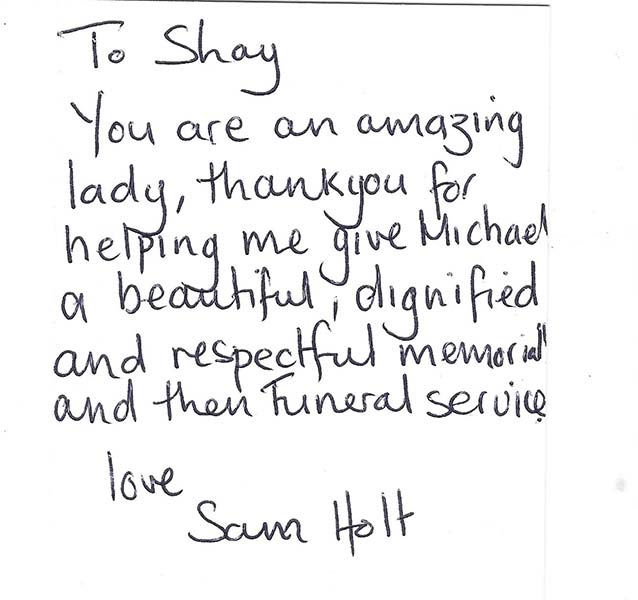 To Shay
You are an amazing
lady, thankyou for
helping me give Michael
a beautiful, dignified
and respectful memorial
and then Funeral service
love
Sam Holt